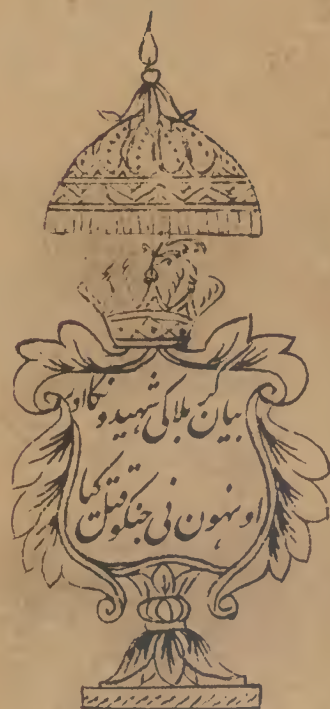 بیان کربلا کی شهیدونکا اور
اونہون نی جنکو قتل کیا